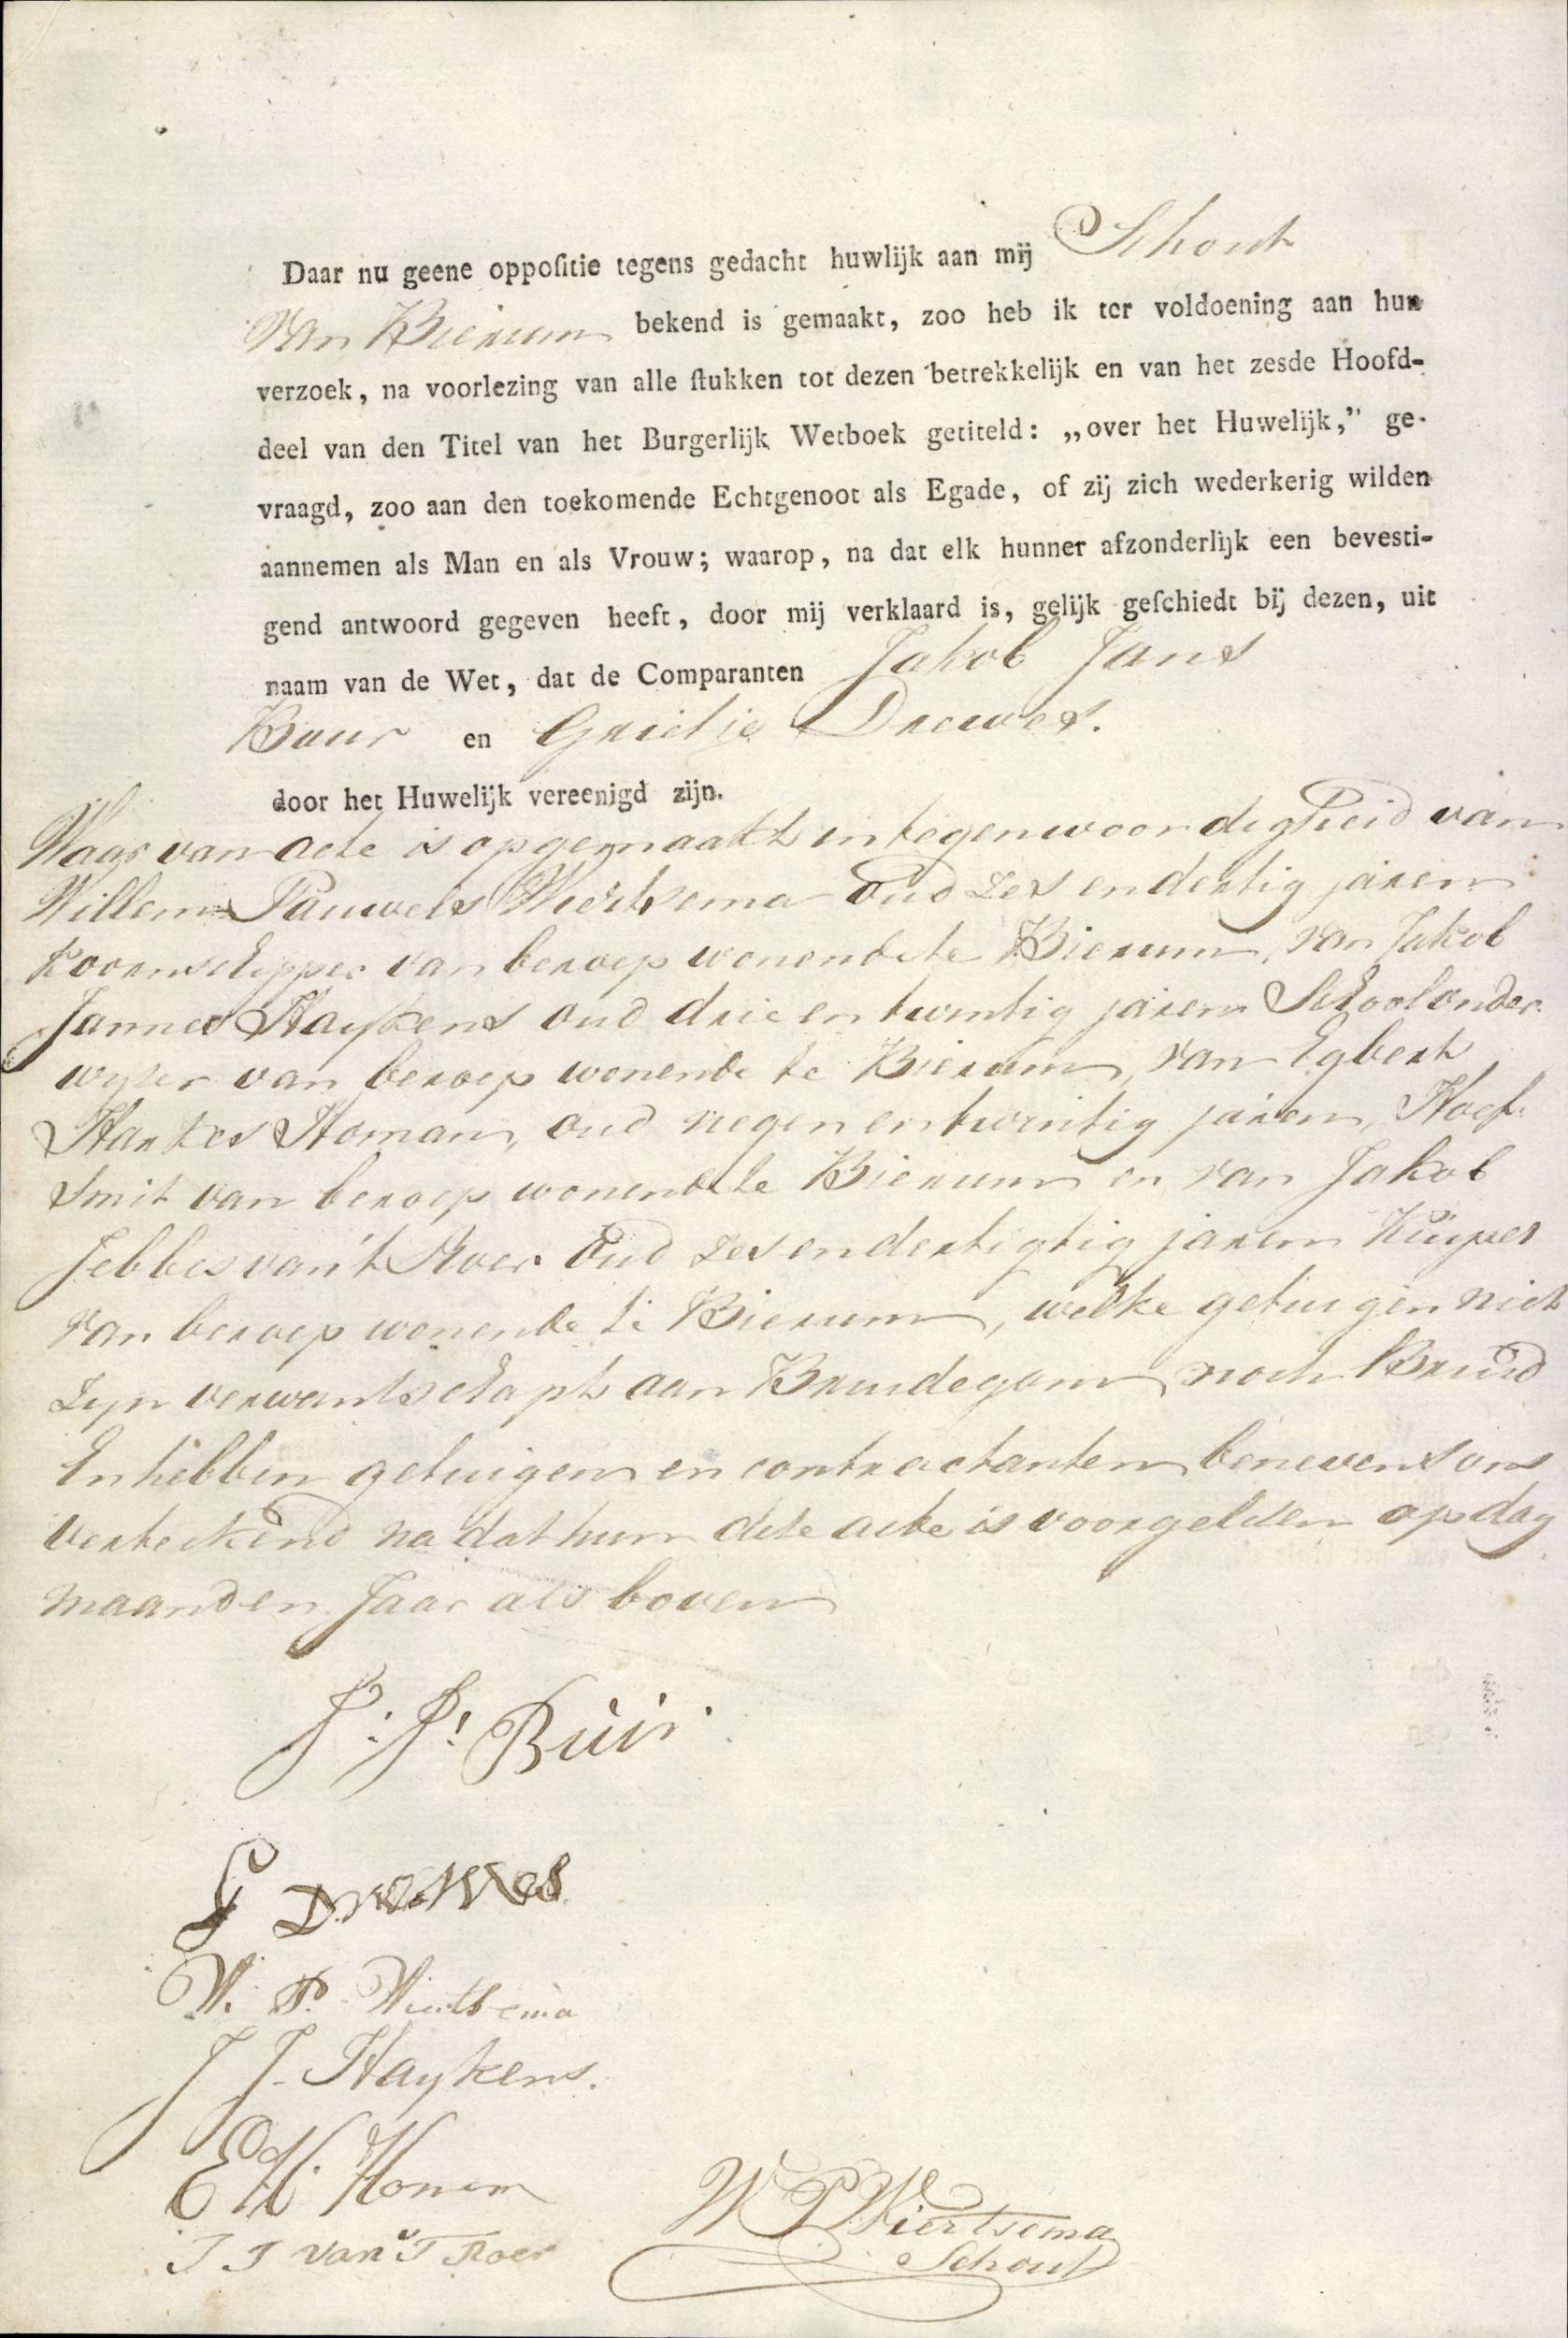 Daar nu geene oppoſitie tegens gedacht huwlijk aan mij Schout
van Bierum bekend is gemaakt, zoo heb ik ter voldoening aan hun
verzoek, na voorlezing van alle ſtukken tot dezen betrekkelijk en van het zesde Hoofd-
deel van den Titel van het Burgerlijk Wetboek getiteld: „over het Huwelijk,” ge-
vraagd, zoo aan den toekomende Echtgenoot als Egade, of zij zich wederkerig wilden
aannemen als Man en als Vrouw; waarop, na dat elk hunner afzonderlijk een bevesti-
gend antwoord gegeven heeft, door mij verklaard is, gelijk geſchiedt bij dezen, uit
naam van de Wet, dat de Comparanten Jakob Jans
Buur en Grietje Drewes.
door het Huwelijk vereenigd zijn.
Waar van acte is opgemaakt in tegenwoordigheid van
Willem Pauwels Wiertsema oud zes en dertig jaren
koornschipper van beroep wonende te Bierum, van Jakob
Jannes Haykens oud drie en twintig jaren Schoolonder
wyzer van beroep wonende te Bierum, van Egbert
Harkes Homan, oud negen en twintig jaren, Hoef
smit van beroep wonende te Bierum en van Jakob
Jebbes van 't Roer oud zes en dertigtig jaren Kuiper
van beroep wonende te Bierum, welke getuigen niet
zyn verwantschapt aan Bruidegom noch Bruid
En hebben getuigen en contractanten benevens ons
vertekend na dat hun dete acte is voorgelesen op dag
maand en Jaar als boven
J: J: Buir
G Drewes
W. P. Wiertsema
J J. Haykens.
E H. Homan
J J van 'T Roer
W P Wiertsema
Schout